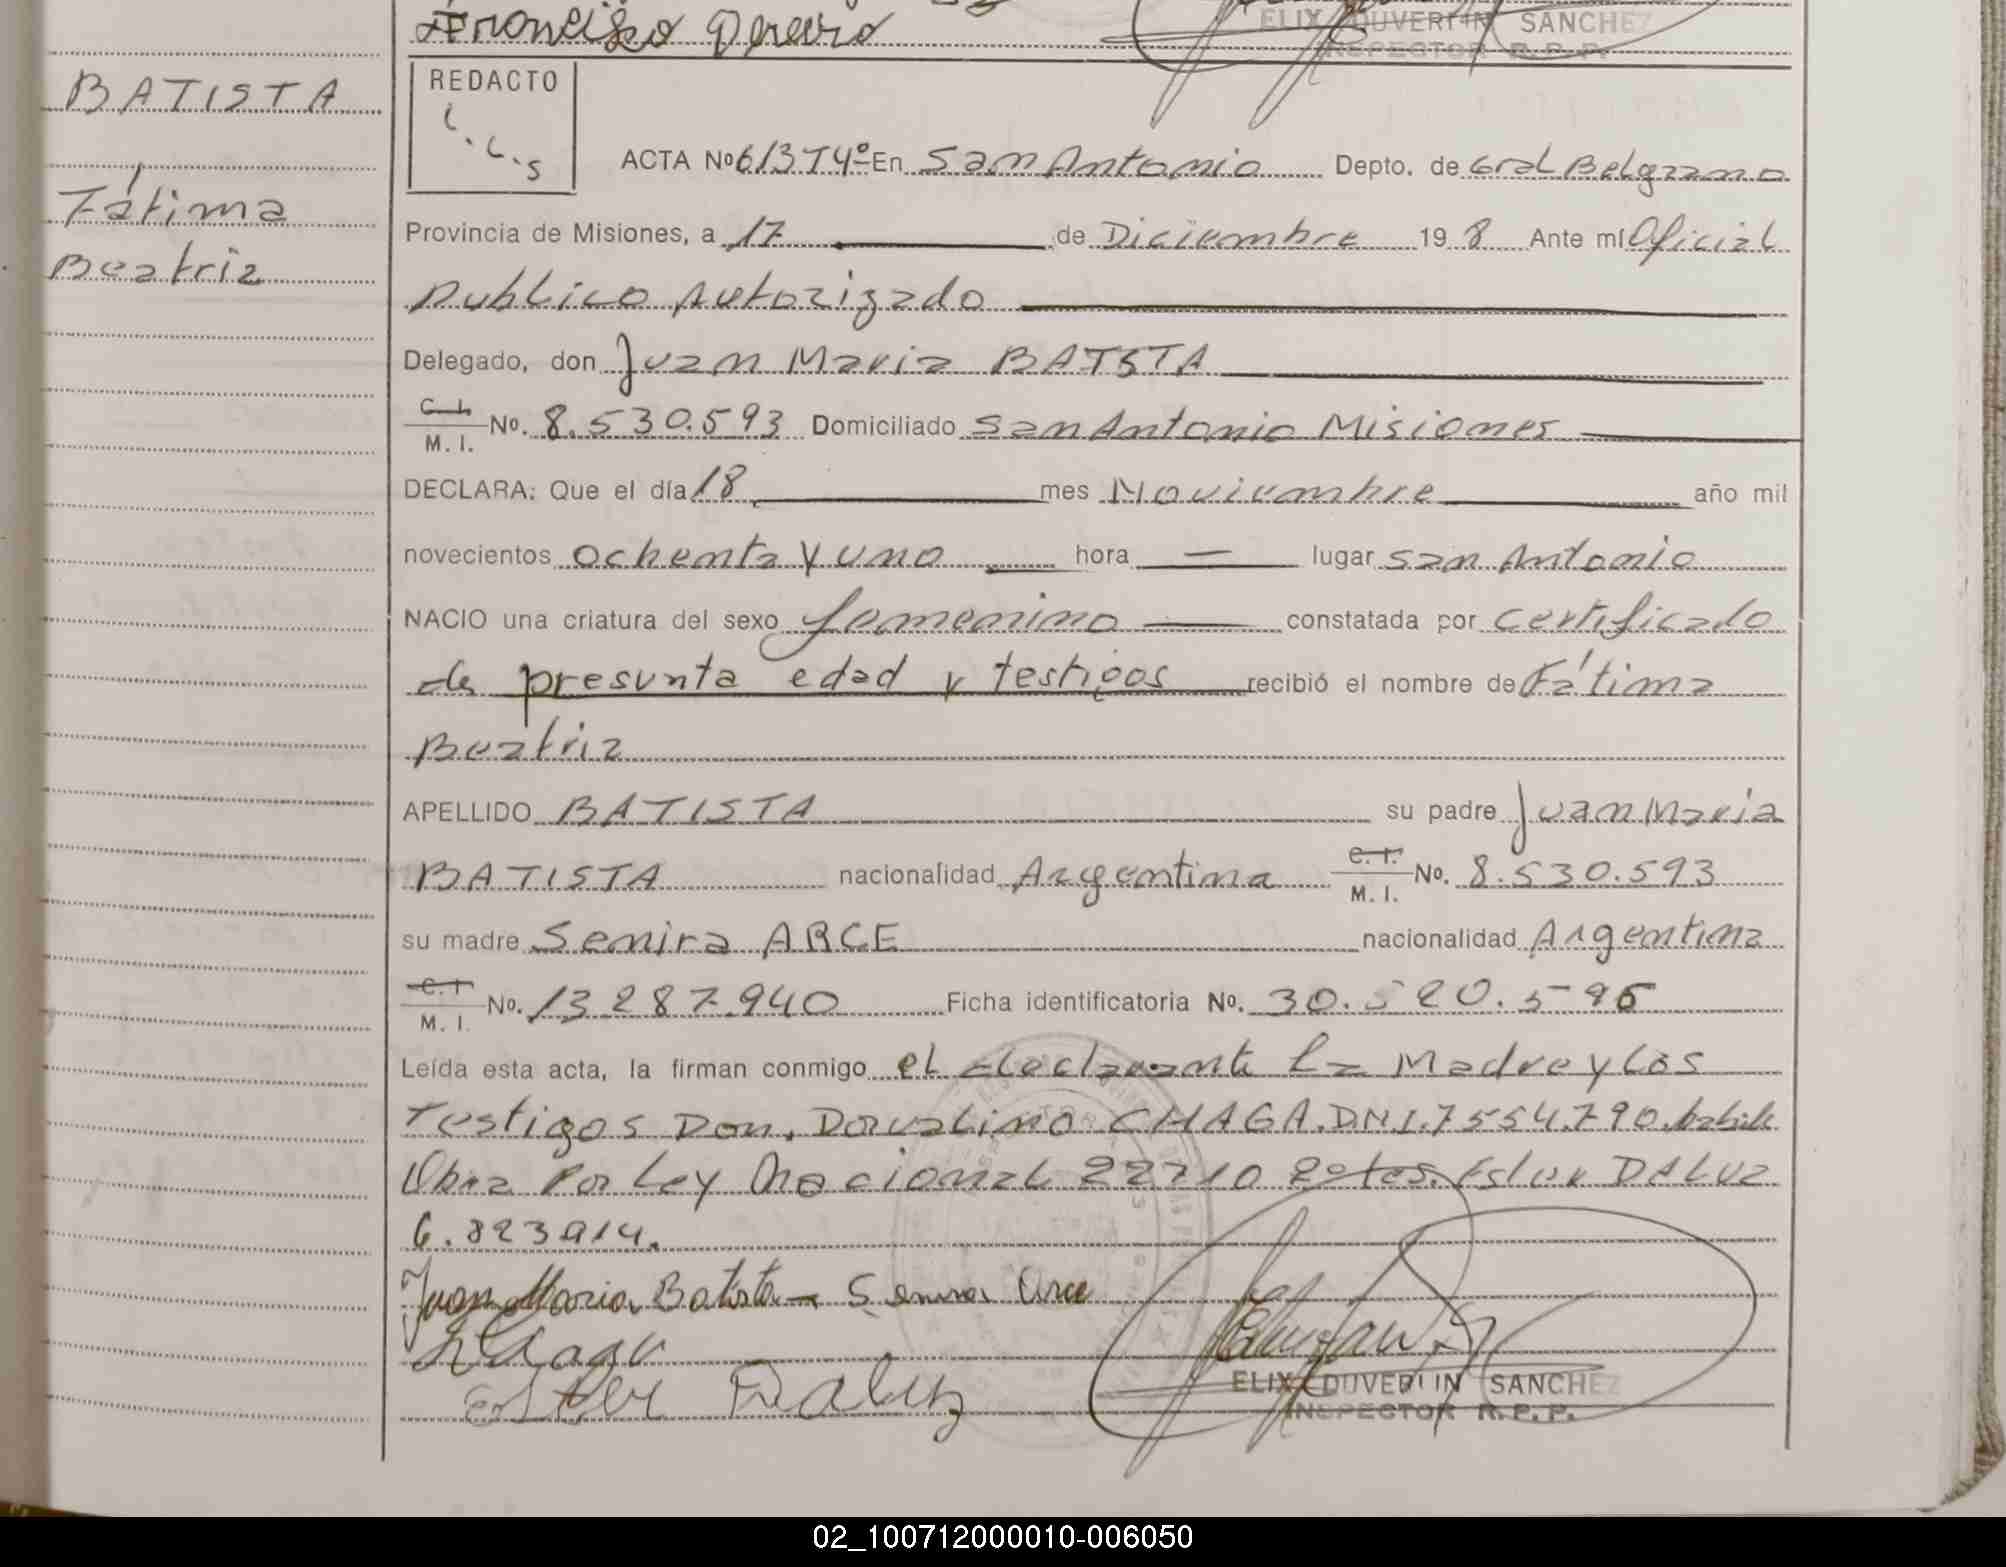 Francisko Pereiro
ELIX DUVERLIN SANCHEZ
INSPECTOR R.P.P.
BATISTA
Fátima
Beatriz
REDACTO
L.L.S
ACTA Nº 613 Tº 4º En San Antonio Depto. de Gral Belgrano
Provincia de Misiones, a 17 de Diciembre 198 Ante mí Oficial
Publico Autorizado
Delegado, don Juan Maria BATSTA
C.I. M.I. No. 8.530.593 Domiciliado San Antonio Misiones
DECLARA: Que el día 18 mes Noviembre año mil
novecientos ochenta y uno hora — lugar San Antonio
NACIO una criatura del sexo femenino constatada por certificado
de presunta edad y testigos recibió el nombre de Fátima
Beatriz
APELLIDO BATISTA su padre Juan Maria
BATISTA nacionalidad Argentina C.I. M.I. No. 8.530.593
su madre Senira ARCE nacionalidad Argentina
C.I. M.I. No. 13287.940 Ficha identificatoria No. 30.520.596
Leída esta acta, la firman conmigo el declarante la Madre y los
Testigos Don. Dorvalino CHAGA.D.N.I.7554.790.
Obra Por Ley Nacional 22710 Ester DALUZ
6.823914.
Juan Maria Batista — Senira Arce
Chaga
Ester Daluz
ELIX DUVERLIN SANCHEZ
INSPECTOR R.P.P.
02_100712000010-006050